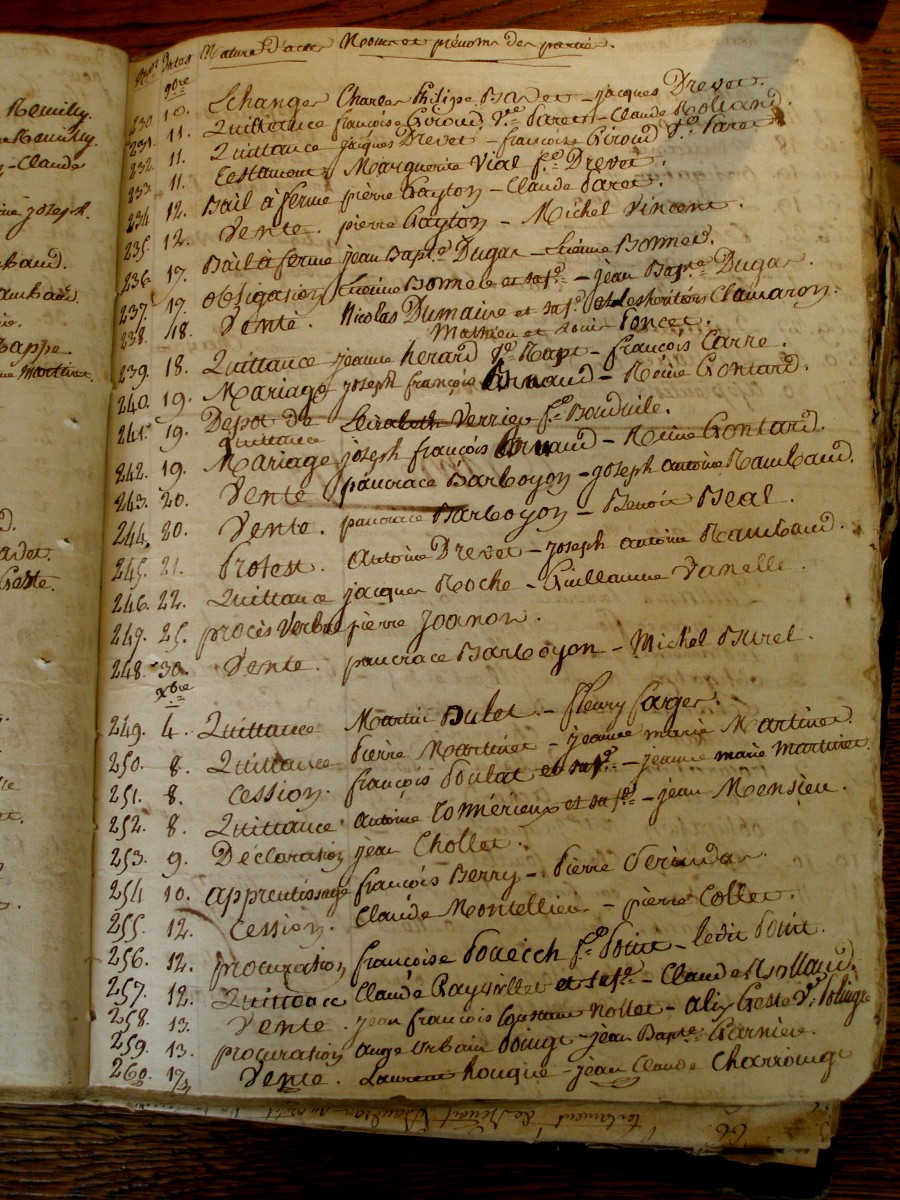 Reuilly.
Reuilly.
-Claude
joseph.
baud.
Rambaud.
Rappe.
Martinet.
Geste.
Nos Dates Nature d'actes Noms et prénoms des parties.
9bre
230. 10. Echange Charles Philipe - jacques Drevet.
231. 11. Quittance françoise Giroud Ve Paret - Claude Rolland.
232. 11. Quittance jacques Drevet - françoise Giroud Ve Paret
233. 11. Testament Marguerite Vial fe Drevet.
234. 12. Bail à ferme pierre Crayton - Claude Paret.
235. 12. Vente. pierre Crayton - Michel Vincent.
236. 17. Bail à ferme jean Bapte Dugas - Etienne Bonnet.
237. 17. obligation Etienne Bonnet et sa fe - jean Bapte Dugas
238. 18. Vente. Nicolas Dumaine et sa fe et les héritiers Clamaron.
Mathieu et Louis Poncet.
239. 18. Quittance jeanne herard Ve Rapt - françois Carre.
240. 19. Mariage joseph françois Arnaud - Reine Gontard.
241. 19. Dépot de Elizabeth Verrier fe
Quittance
242. 19. Mariage joseph françois Arnaud - Reine Gontard.
243. 20. Vente pancrace Barboyon - joseph antoine Rambaud.
244. 20. Vente. pancrace Barboyon - Benoit Béal.
245. 21. Protest. Antoine Drevet - joseph antoine Rambaud.
246. 22. Quittance jacques Roche - Guillaume Vanelle.
247. 25. procès Verbal pierre Joanon.
248. 30. Vente. pancrace Barboyon - Michel Buret.
Xbre
249. 4. Quittance Martin Dulet - fleury farges.
250. 8. Quittance Pierre Martinet - jeanne marie Martinet.
251. 8. Cession. françois Poulat et sa fe - jeanne marie martinet.
252. 8. Quittance antoine Commérieux et sa fe - jean Mensieu.
253. 9. Déclaration jean Chollet.
254 10. apprentissage françois Berry - Pierre
255. 12. Cession. Claude Montellier - pierre Collet.
256. 12. procuration françoise fe Point - ledit Point.
257. 12. Quittance Claude et sa fe - Claude Rolland.
258. 13. Vente. jean françois Nollet - alix Geste Ve
259. 13. procuration ange Urbain - jean Bapte Garnier.
260. 17 Vente. Laurent houque - jean Claude Charrouge